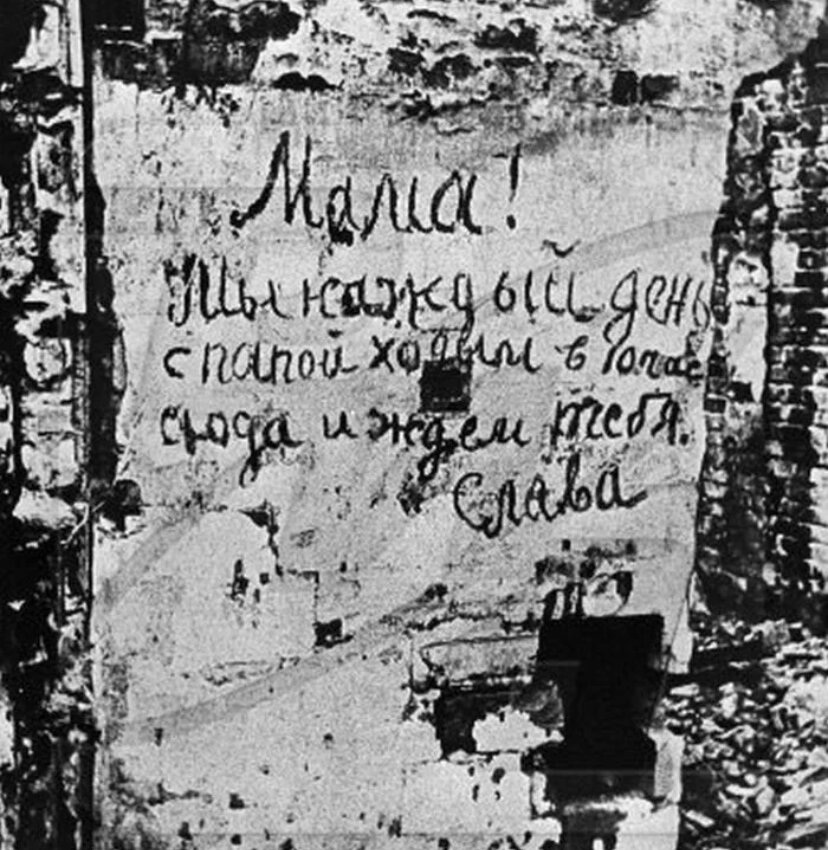 Мама!
Мы каждый день
с папой ходым в 10 час
сюда и ждем тебя.
Слава